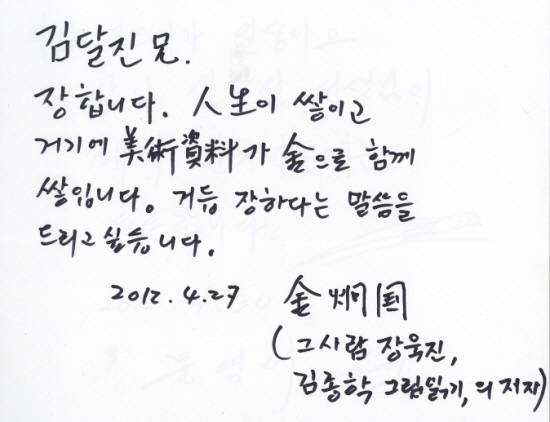 김달진 兄.
장합니다. 人生이 쌓이고
거기에 美術資料가 金으로 함께
쌓입니다. 거듭 장하다는 말씀을
드리고 싶습니다.
2012.4.27 金炯国
(그사람 장욱진,
김종학 그림읽기, 의 저자)